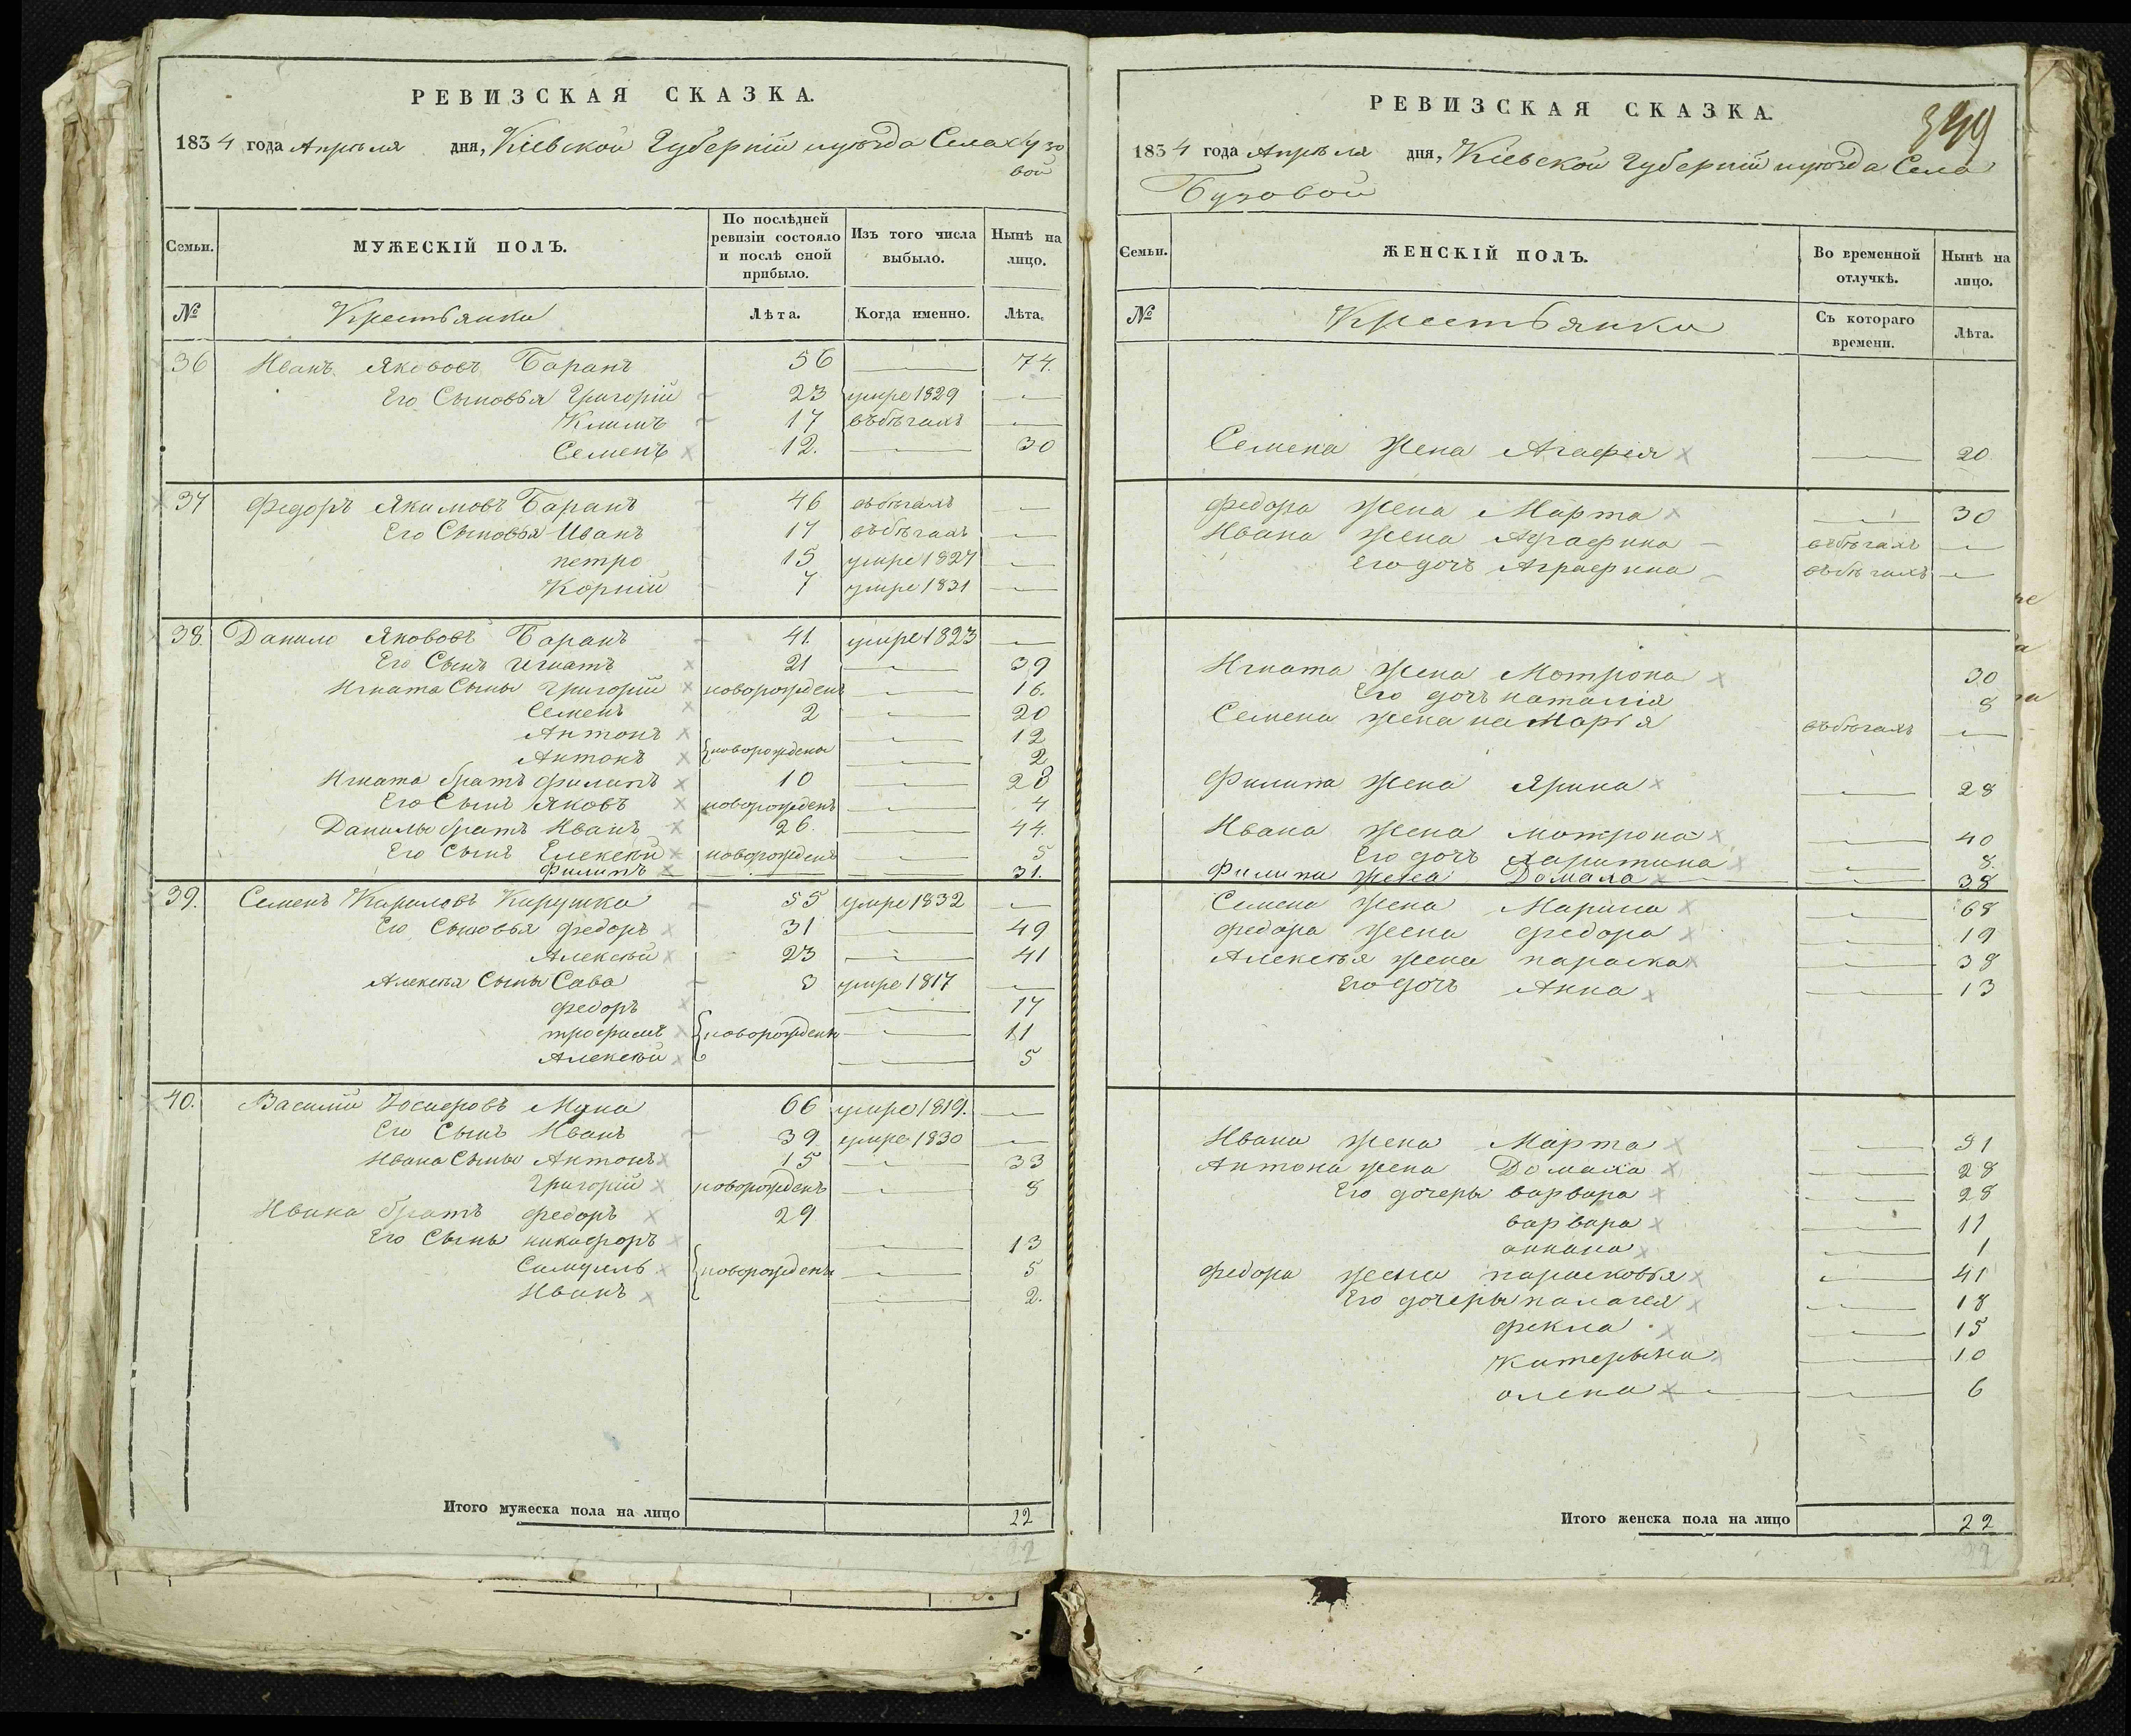 РЕВИЗСКАЯ СКАЗКА.
1834 года Апреля дня, Кіевской Губерніи и уезда Села
вой
Семьи.
МУЖЕСКІЙ ПОЛЪ.
По послѣдней ревизіи состояло и послѣ оной прибыло.
Изъ того числа выбыло.
Нынѣ на лицо.
№
Крестьянки
Лѣта.
Когда именно.
Лѣта.
36 Иванъ Якововъ Баранъ 56 74.
Его Сыновья Григорій 23 умре 1829
Климъ 17 въбѣгахъ
Семенъ 12. 30
37 Федоръ Якимовъ Баранъ 46 въбѣгахъ
Его Сыновья Иванъ 17 въбѣгахъ
петро 15 умре 1827
Корній 7 умре 1831
38. Данило Якововъ Баранъ 41. умре 1823
Его Сынъ Игнатъ 21 39
Игната Сыны Григорій новорожденъ 16.
Семенъ 2 20
Антонъ 12
Антонъ новорождены 2
Игната братъ филипъ 10 28
Его Сынъ Яковъ новорожденъ 4
Данилы братъ Иванъ 26. 44.
Его Сынъ Елексей новорожденъ 5
Филипъ 31.
39. Семенъ Кириловъ 55 умре 1832
Его Сыновья федоръ 31 49
Алексѣй 23 41
Алексѣя Сыны Сава 3 умре 1817
федоръ 17
трофимъ новорождены 11
Алексѣй 5
40. Василій Іосифовъ 66 умре 1819.
Его Сынъ Иванъ 39 умре 1830
Ивана Сыны Антонъ 15 33
Григорій новорожденъ 8
Ивана братъ федоръ 29
Его Сыны никифоръ 13
Самуилъ новорождены 5
Иванъ 2.
Итого мужеска пола на лицо 22
22
РЕВИЗСКАЯ СКАЗКА.
399
1834 года Апрѣля дня, Кіевской Губерніи и уѣзда Села
Бузовой
Семьи.
ЖЕНСКІЙ ПОЛЪ.
Во временной отлучкѣ.
Нынѣ на лицо.
№
Крестьянки
Съ котораго времени.
Лѣта.
Семена Жена Агафія 20
федора Жена Марта 30
Ивана Жена въбѣгахъ
Его дочь Аграфина въбѣгахъ
Игната Жена Мотрона 30
Его дочь наталія 8
Семена жена Марья въбѣгахъ
Филипа Жена Ярина 28
Ивана Жена мотрона 40
Его дочь Харитина 8
Филипа Жена Домаха 38
Семена Жена Марина 68
федора Жена федора 19
Алексѣя Жена параска 38
Его дочь Анна 13
Ивана Жена Марта 51
Антона Жена Домаха 28
Его дочеры варвара 28
варвара 11
1
федора Жена парасковья 41
Его дочеры палагея 18
фекла 15
Катерына 10
олена 6
Итого женска пола на лицо 22